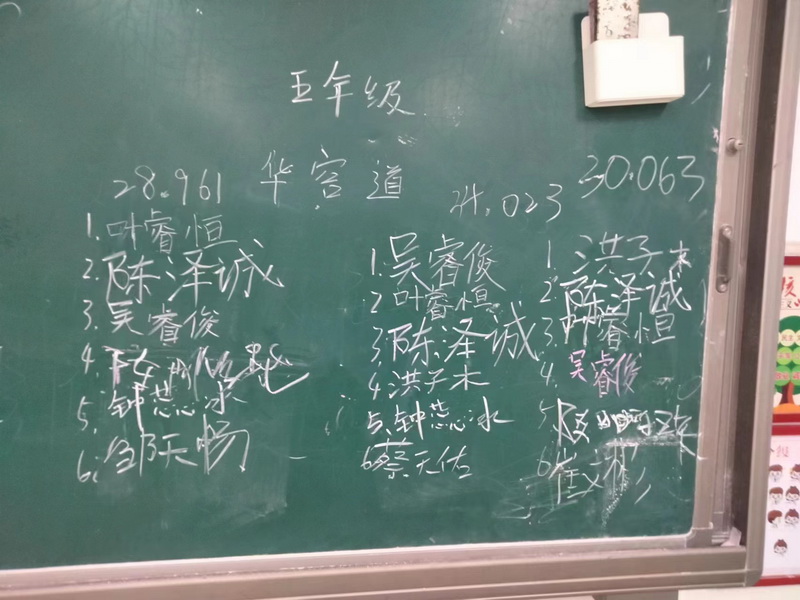 五年级
华容道
28.961
1.叶睿恒
2.陈泽诚
3.吴睿俊
4.
5.钟蕊冰
6.邹天畅
24.023
1.吴睿俊
2叶睿恒
3陈泽诚
4洪子木
5.钟蕊冰
6蔡天佑
30.063
1.洪子木
2.陈泽诚
3.叶睿恒
4.吴睿俊
5.
6崔文彬